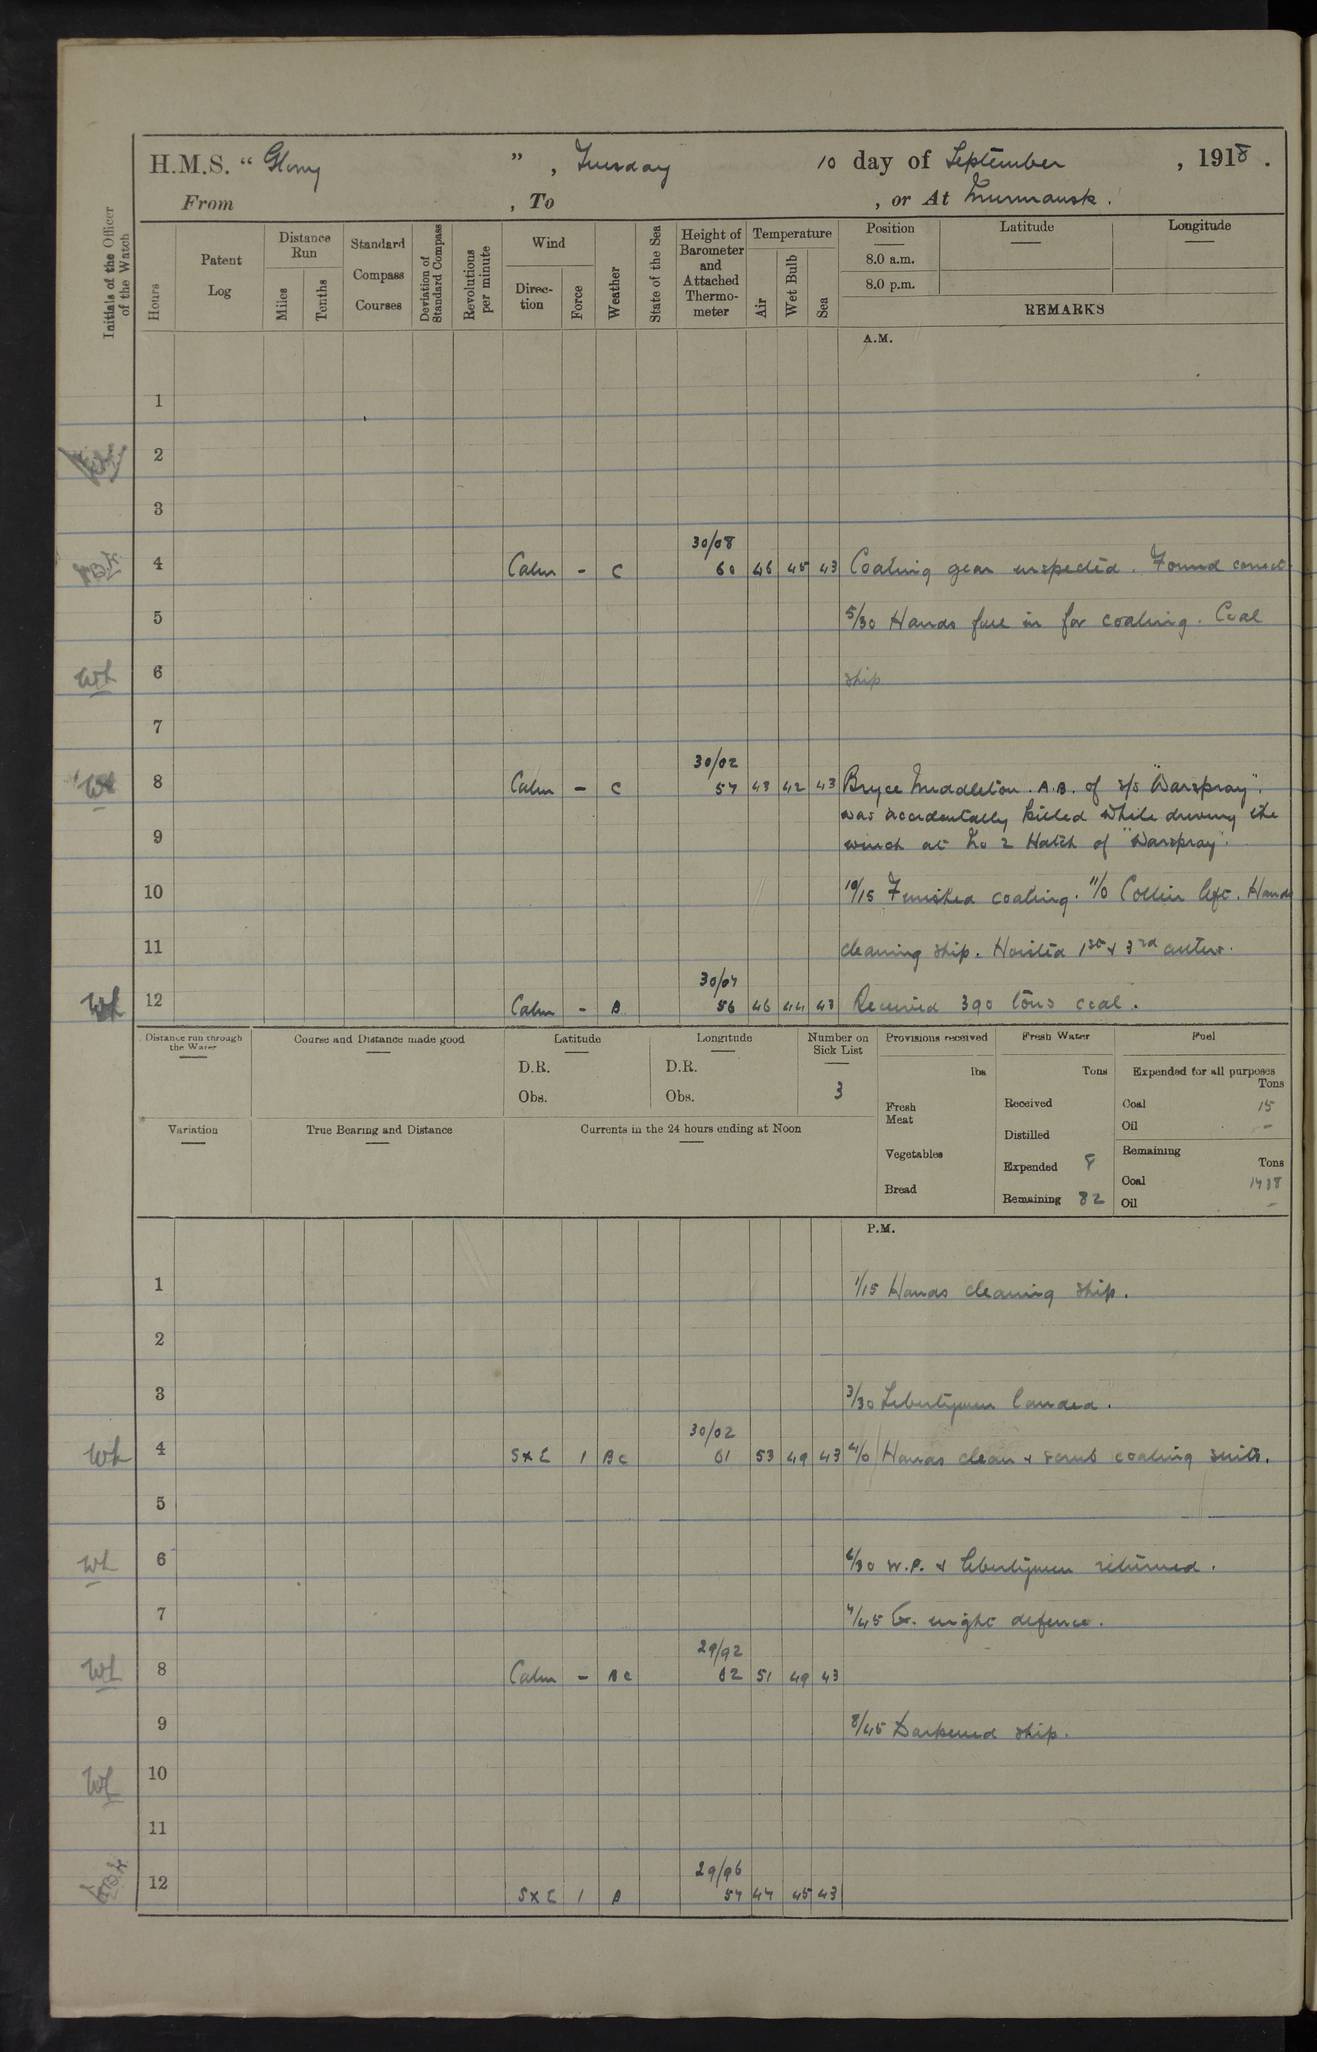 H.M.S. “ Glory ” , Tuesday 10 day of September , 1918 .
From , To , or At Murmansk .
Initials of the Officer of the Watch
Hours
Patent Log
Distance Run
Miles
Tenths
Standard Compass Courses
Deviation of Standard Compass
Revolutions per minute
Wind
Direction
Force
Weather
State of the Sea
Height of Barometer and Attached Thermometer
Temperature
Air
Wet Bulb
Sea
Position
Latitude
Longitude
8.0 a.m.
8.0 p.m.
REMARKS
A.M.
1
2
3
30/08
4 Calm - C 60 46 45 43 Coaling gear inspected. Found correct
5 5/30 Hands fall in for coaling. Coal
6 ship
7
30/02
8 Calm - C 57 43 42 43 Bryce Middleton. A.B. of s/s "Warspray".
was accidentally killed while driving the
9 winch at No 2 Hatch of "Warspray".
10 10/15 Finished coaling. 11/0 Collier left. Hands
11 cleaning ship. Hoisted 1st & 3rd cutter.
30/07
12 Calm - B 56 46 44 43 Received 390 tons coal.
Distance run through the Water
Course and Distance made good
Latitude
D.R.
Obs.
Longitude
D.R.
Obs.
Number on Sick List
3
Provisions received
lbs
Fresh Meat
Vegetables
Bread
Fresh Water
Tons
Received
Distilled
Expended 8
Remaining 82
Fuel
Expended for all purposes
Tons
Coal 15
Oil -
Remaining
Tons
Coal
Oil -
Variation
True Bearing and Distance
Currents in the 24 hours ending at Noon
P.M.
1 1/15 Hands cleaning ship.
2
3 3/30 Libertymen landed.
30/02
4 SxE 1 BC 61 53 49 43 4/0 Hands clean & scrub coaling suits.
5
6 6/30 W.P. & libertymen returned.
7 7/45 Ex. night defence.
29/92
8 Calm - BC 62 51 49 43
9 8/45 Darkened ship.
10
11
29/96
12 SxE 1 B 57 47 45 43